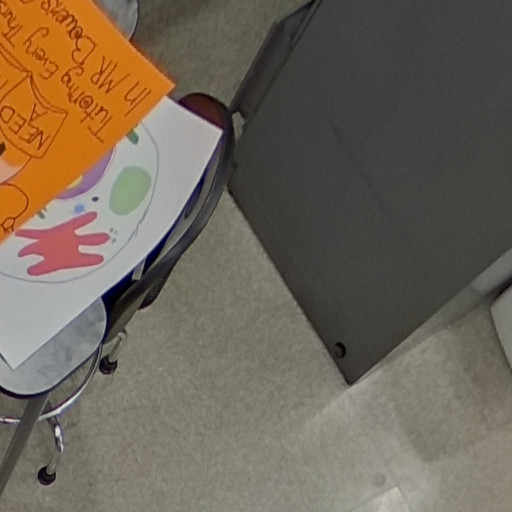 NEED
A
Tutoring Every Thur
In MR Bowers